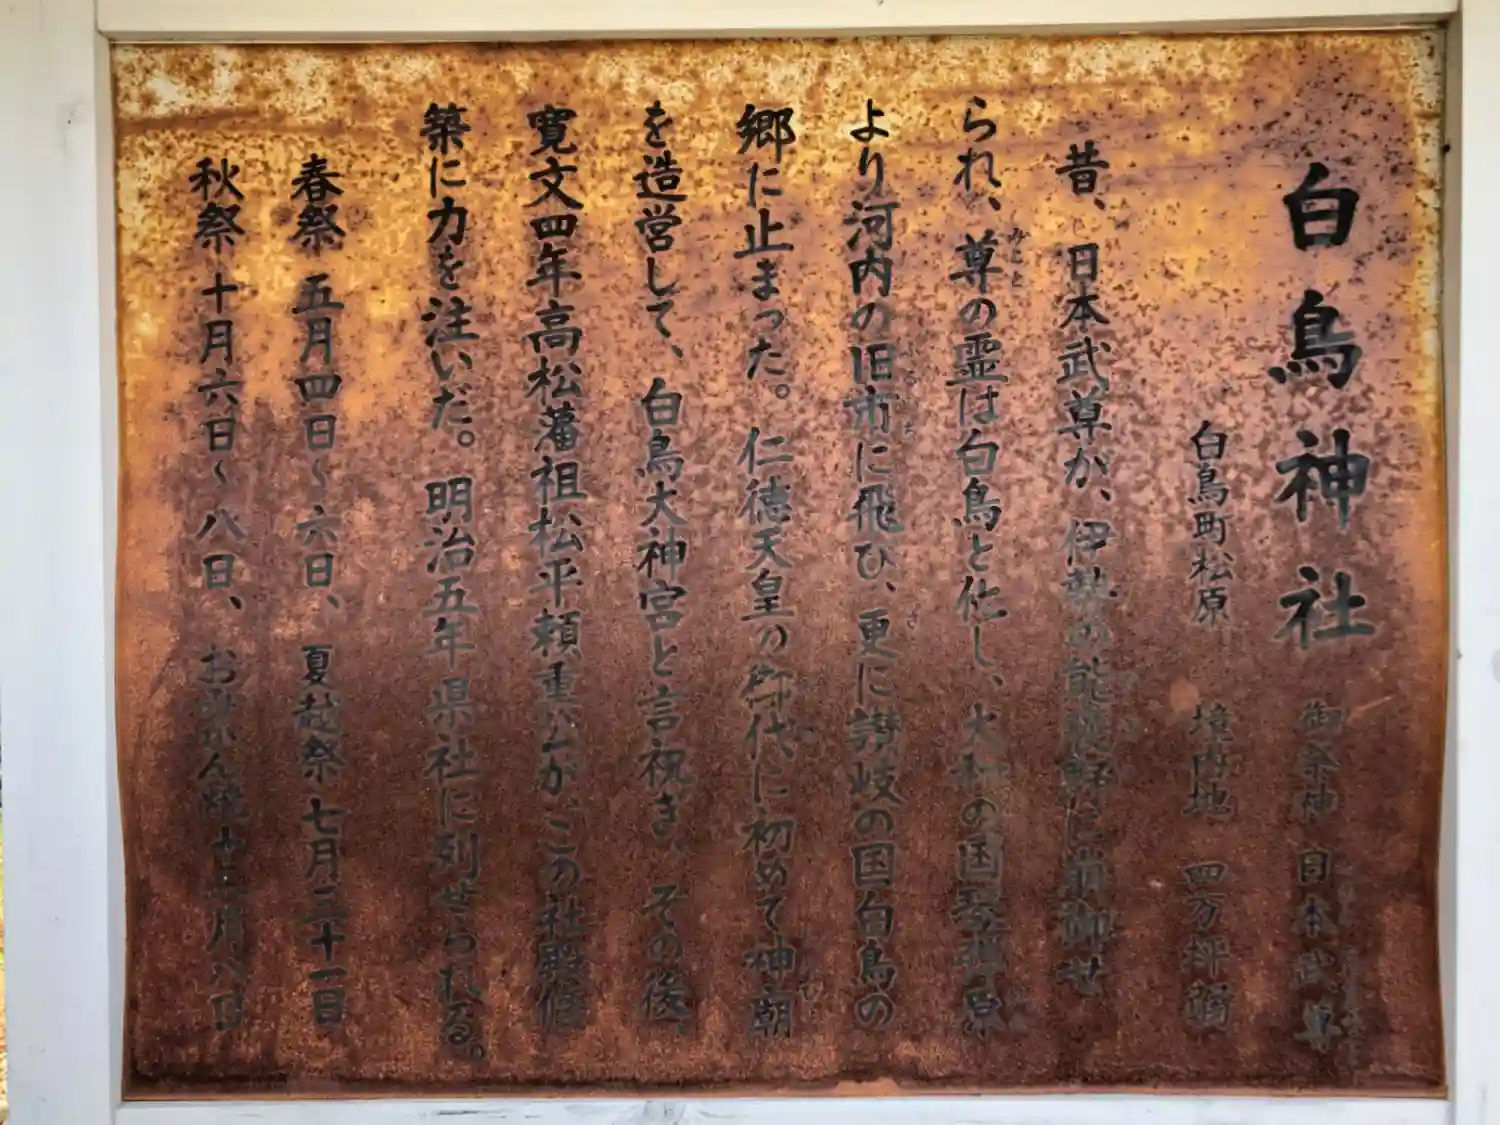 白鳥神社 御祭神 日本武尊
白鳥町松原 境内地 四万坪弱
昔、日本武尊が、伊勢の能褒野に崩御せ
られ、尊の霊は白鳥と化し、大和の国琴弾原
より河内の旧市に飛ひ、更に讃岐の国白鳥の
郷に止まった。仁徳天皇の御代に初めて神廟
を造営して、白鳥大神宮と言祝ぎ、その後、
寛文四年高松藩祖松平頼重公が、この社殿修
築に力を注いだ。明治五年県社に列せられる。
春祭 五月四日〜六日、夏越祭 七月三十一日
秋祭 十月六日〜八日、おみかん焼十二月八日